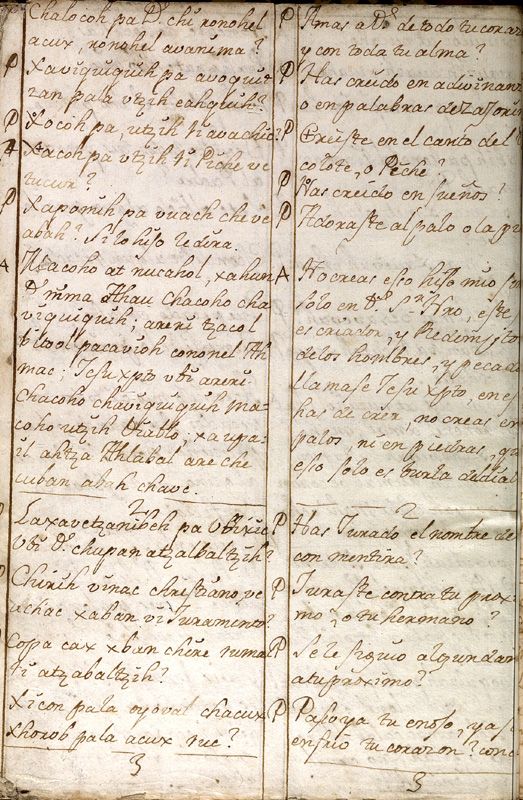 Chalocoh pa D.s chi ronohel
acux, ronohel avanima?
P Xaviquiquih pa avoquit
zan pala vtzih eahquih?
P Xocoh pa, utzih ri avachic?
P Xacoh pa vtzih ri Piche ve
tucur?
P Xaponih pa vuach che ve
abah? Si lo hiso le dira.
A Macoho at nucahol, xahun
D.s nima Ahau chacoho cha
viquiquih; areri tzacol
bitool pacavioh cononel Ah
mac; Jesu xpto vbi areri
chacoho chaviquiquih ma
coho utzih Diablo, xa upa
il ahtza Ahlabal are che
cuban abah chave.
2
Laxavetzanibeh pa vbixic
vbi D.s chupan atzalbaltzih?
Chirih vinac christiano, ve
achac xaban vi Juramento?
coppa cax xban chire rumal
ri atzabaltzih?
Xicon pala oyoval chacux
xhorob pala acux rue?
3
P Amas a D.s de todo tu coraz
y con toda tu alma?
P Has creido en adivinanz
o en palabras de zajorin
P Creiste en el canto del
colote, o Peche?
P Has creido en sueños?
P Adoraste al palo o la pi
A No creas esso hijo mio, sino
solo en D.s S.r Nro, este
es criador, y Redemptor
de los hombres, y pecado
llamase Jesu xpto, en es
has de crer, no creas en
palos, ni en piedras, que
esso solo es burla del dial
2
P Has Jurado el nombre de
con mentira?
P Juraste contra tu prox
mo, o tu hermano?
P Se le siguio algun dan
a tu proximo?
P Paso ya tu enojo, y a s
enfrio tu corazon? conc
3